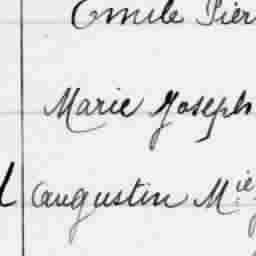 Emile Pier
Marie Joseph
Augustin M.ie